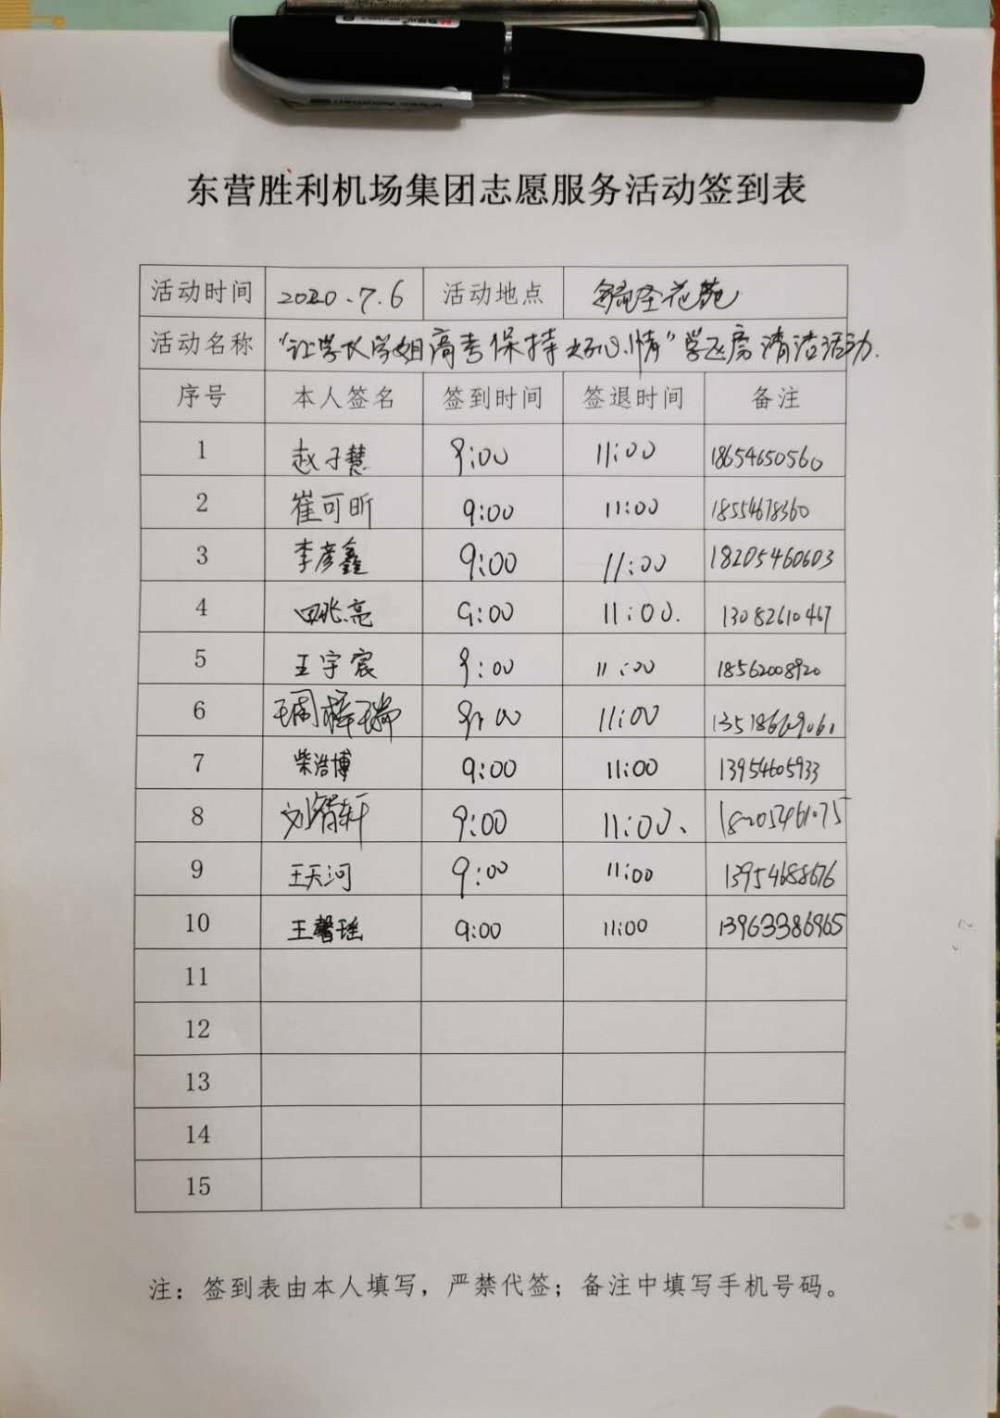 东营胜利机场集团志愿服务活动签到表
活动时间 2020.7.6 活动地点 圣花苑
活动名称 "让学长学姐高考保持好心情"学区房清洁活动.
序号 本人签名 签到时间 签退时间 备注
1 赵子慧 9:00 11:00 18654650560
2 崔可昕 9:00 11:00 18554678360
3 李彦鑫 9:00 11:00 18205460603
4 田兆亮 9:00 11:00. 13082610467
5 王宇宸 9:00 11:00 18562008920
6 周梓瑞 9:00 11:00
7 柴浩博 9:00 11:00 13954605933
8 刘智轩 9:00 11:00、
9 王天河 9:00 11:00 13954688676
10 王馨瑶 9:00 11:00 13963386965
11
12
13
14
15
注：签到表由本人填写，严禁代签；备注中填写手机号码。